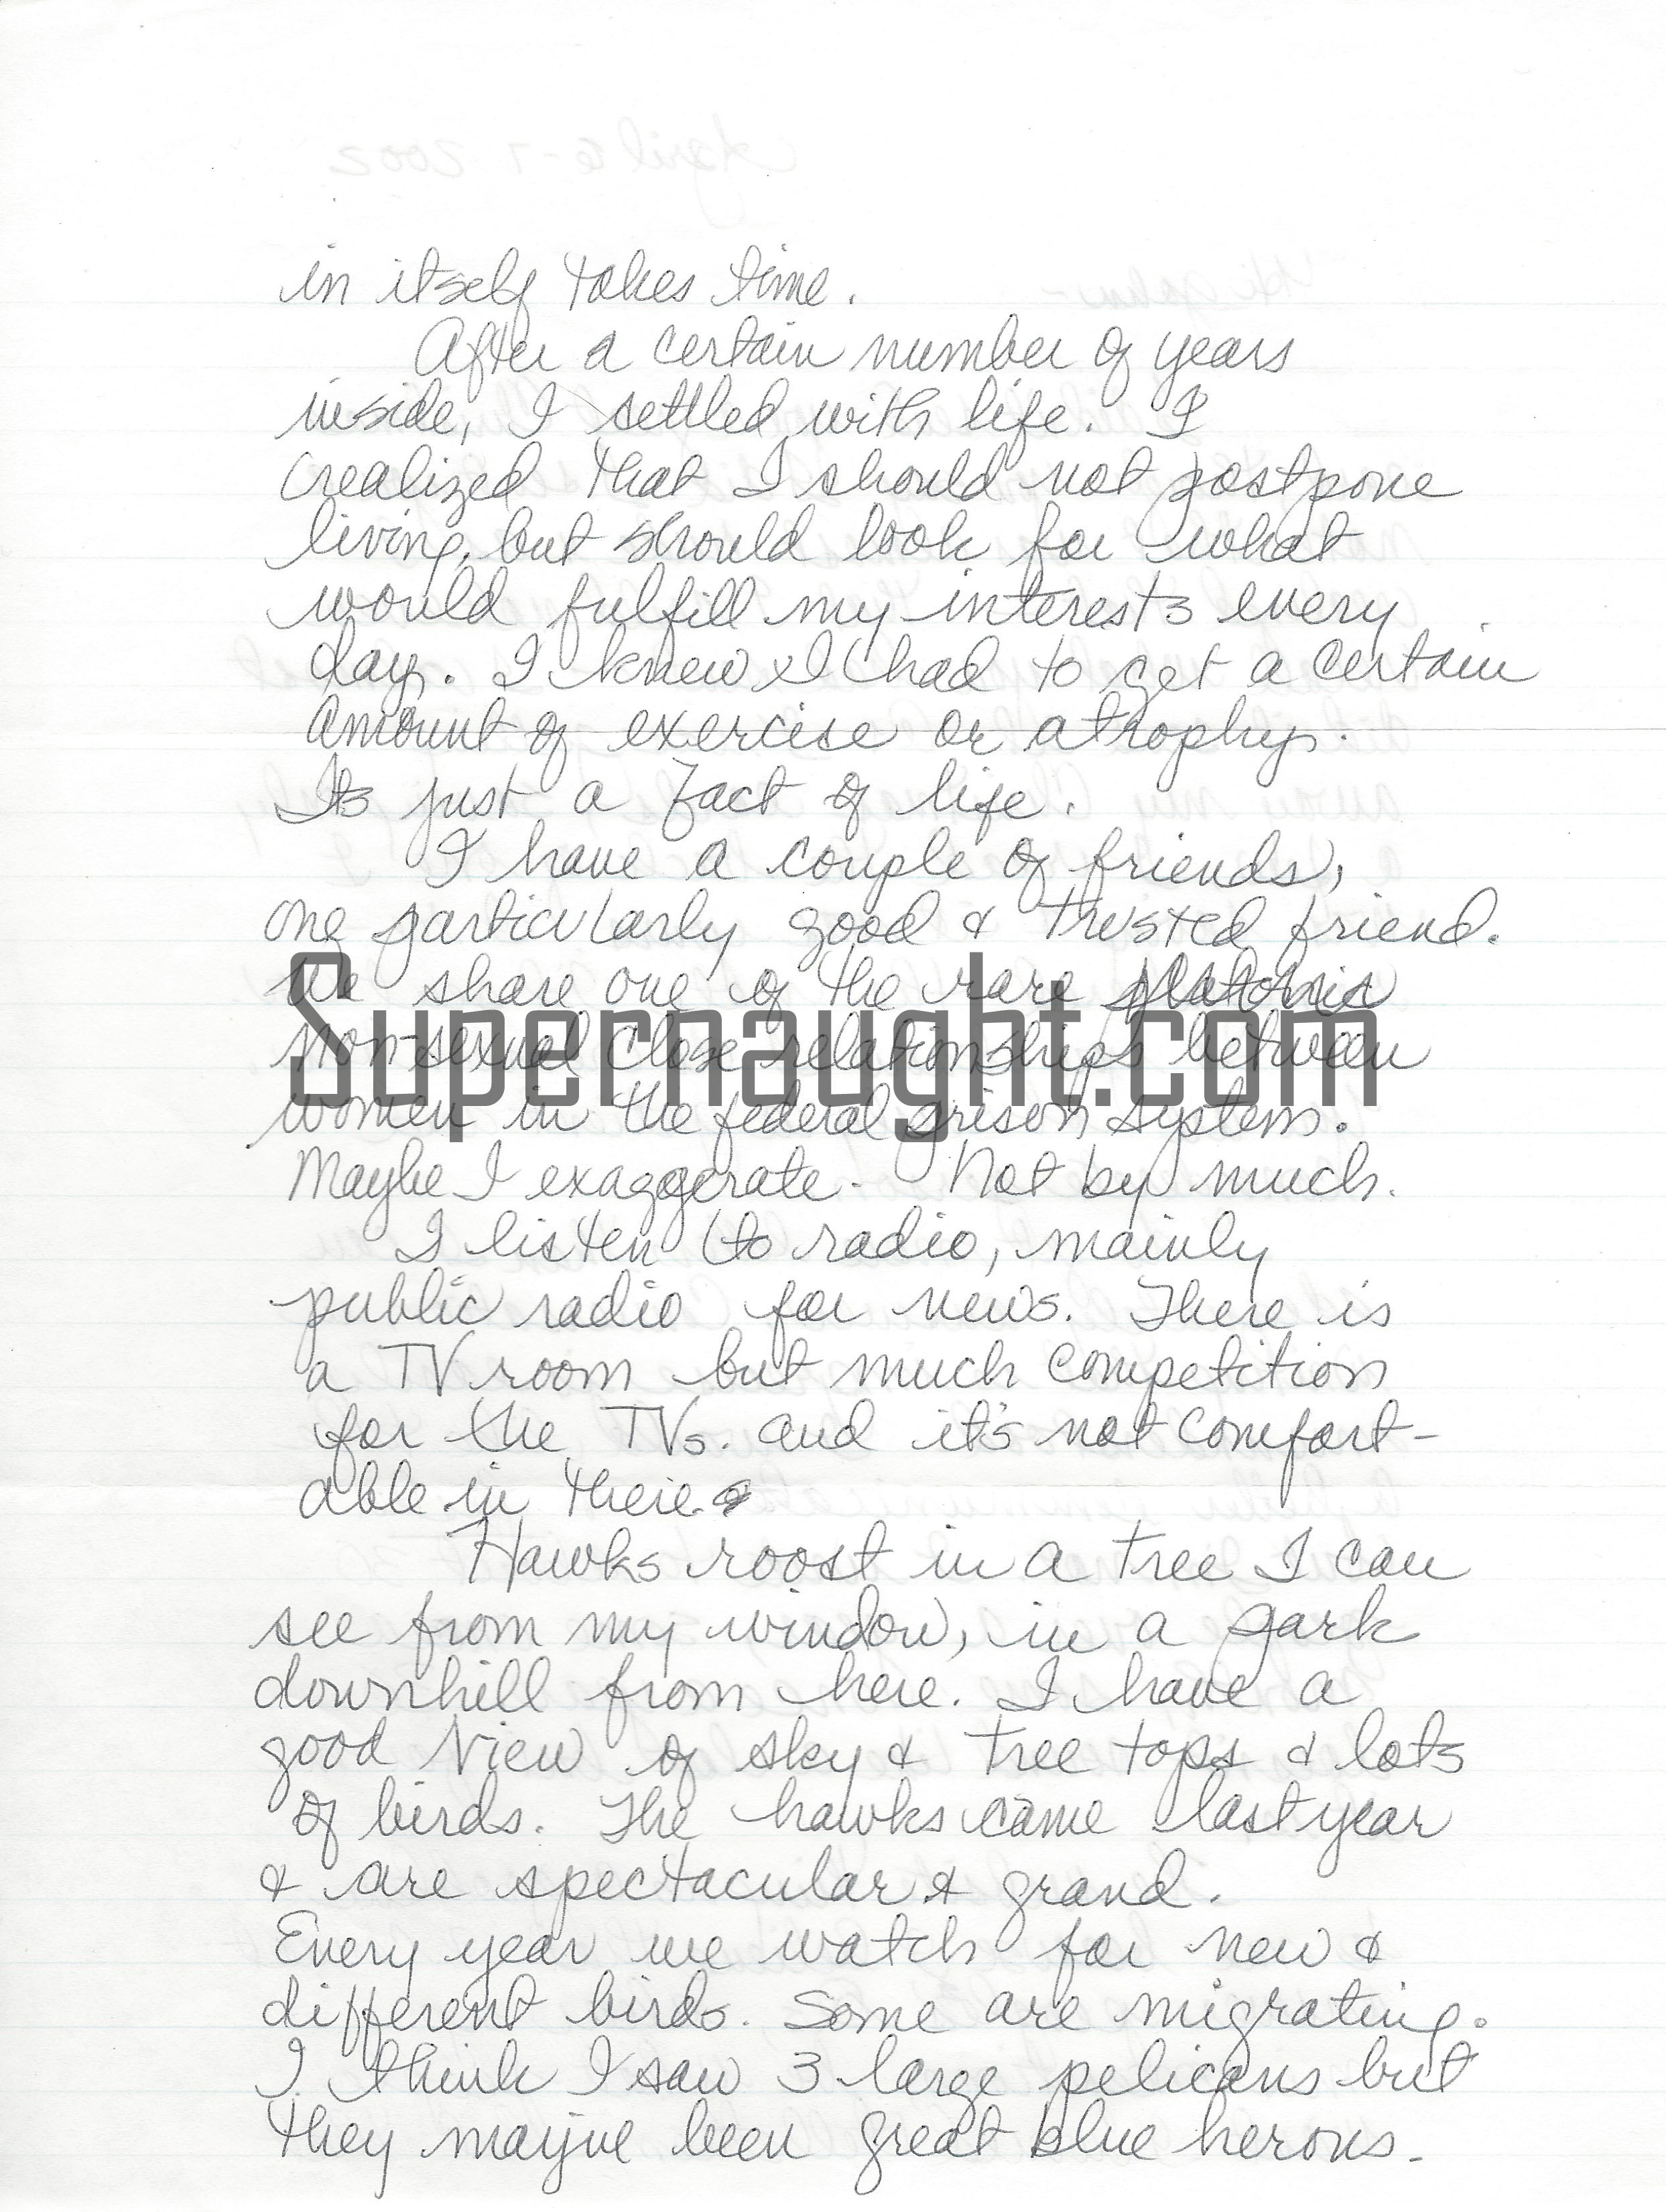 April 6-7 2002
Hi John -
in itself takes time.
After a certain number of years
inside, I settled with life. I
realized that I should not postpone
living, but should look for what
would fulfill my interests every
day. I knew I had to get a certain
amount of exercise or atrophy.
Its just a fact of life.
I have a couple of friends,
one particularly good & trusted friend.
We share one of the rare platonic
non-sexual close relationships between
women in the federal prison system.
Maybe I exaggerate - Not by much.
I listen to radio, mainly
public radio for news. There is
a TV room but much competition
for the TVs. and it's not comfort-
able in there.
Hawks roost in a tree I can
see from my window, in a park
downhill from here. I have a
good view of sky & tree tops & lots
of birds. The hawks came last year
& are spectacular & grand.
Every year we watch for new &
different birds. Some are migrating.
I think I saw 3 large pelicans but
they mayve been great blue herons.
Supernaught.com